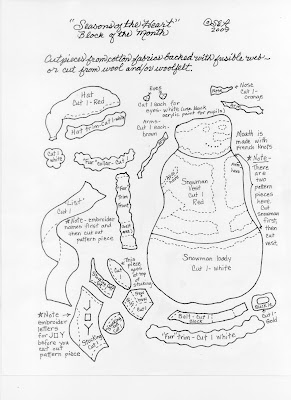 "Seasons of the Heart"
Block of the Month
©SEL
2009
Cut pieces from cotton fabrics backed with fusible web
or cut from wool and/or woolfelt.
Hat
Cut 1-Red
Hat Trim-Cut 1-white
Cut 1
white
"Fur" Collar-Cut 1
Eyes
Cut 1 each for
eyes-white (use black
acrylic paint for pupils)
Arms-
Cut 1 each-
brown
Nose
Cut 1-
orange
Mouth is
made with
French knots
*Note-
There are
two
pattern
pieces
here.
Cut
Snowman
first,
then
cut
vest.
Snowman
Vest
Cut 1
Red
Snowman body
Cut 1-white
"List"
Cut 1
*Note-embroider
names first and
then cut out
pattern piece
"Fur
Trim"
This
piece
goes
at top
of
stocking
Cut 1
*Note
embroider
letters
for JOY
before
you cut
out
pattern piece
JOY
Stocking
Cut 1
Belt-Cut 1
Black
Buckle
Cut 1-
Gold
"Fur" Trim-Cut 1 white